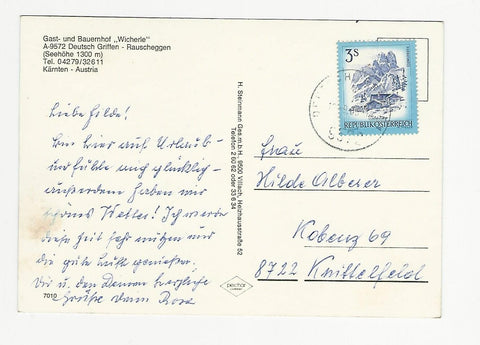 Gast- und Bauernhof „Wicherle"
A-9572 Deutsch Griffen - Rauscheggen
(Seehöhe 1300 m)
Tel. 04279/32611
Kärnten - Austria
Liebe Hilde!
Bin hier auf Urlaub
und fühle mich glücklich
außerdem haben wir
schönes Wetter! Ich werde
diese Zeit sehr nützen und
die gute Luft genießen.
Dir u. den Deinen herzliche
Grüße Deine Rosa
7010
H. Steinmann Ges.m.b.H., 9500 Villach, Heizhausstraße 52
Telefon 2 60 62 oder 33 6 34
3S
REPUBLIK ÖSTERREICH
Frau
Hilde Alberer
Kobenz 69
8722 Knittelfeld